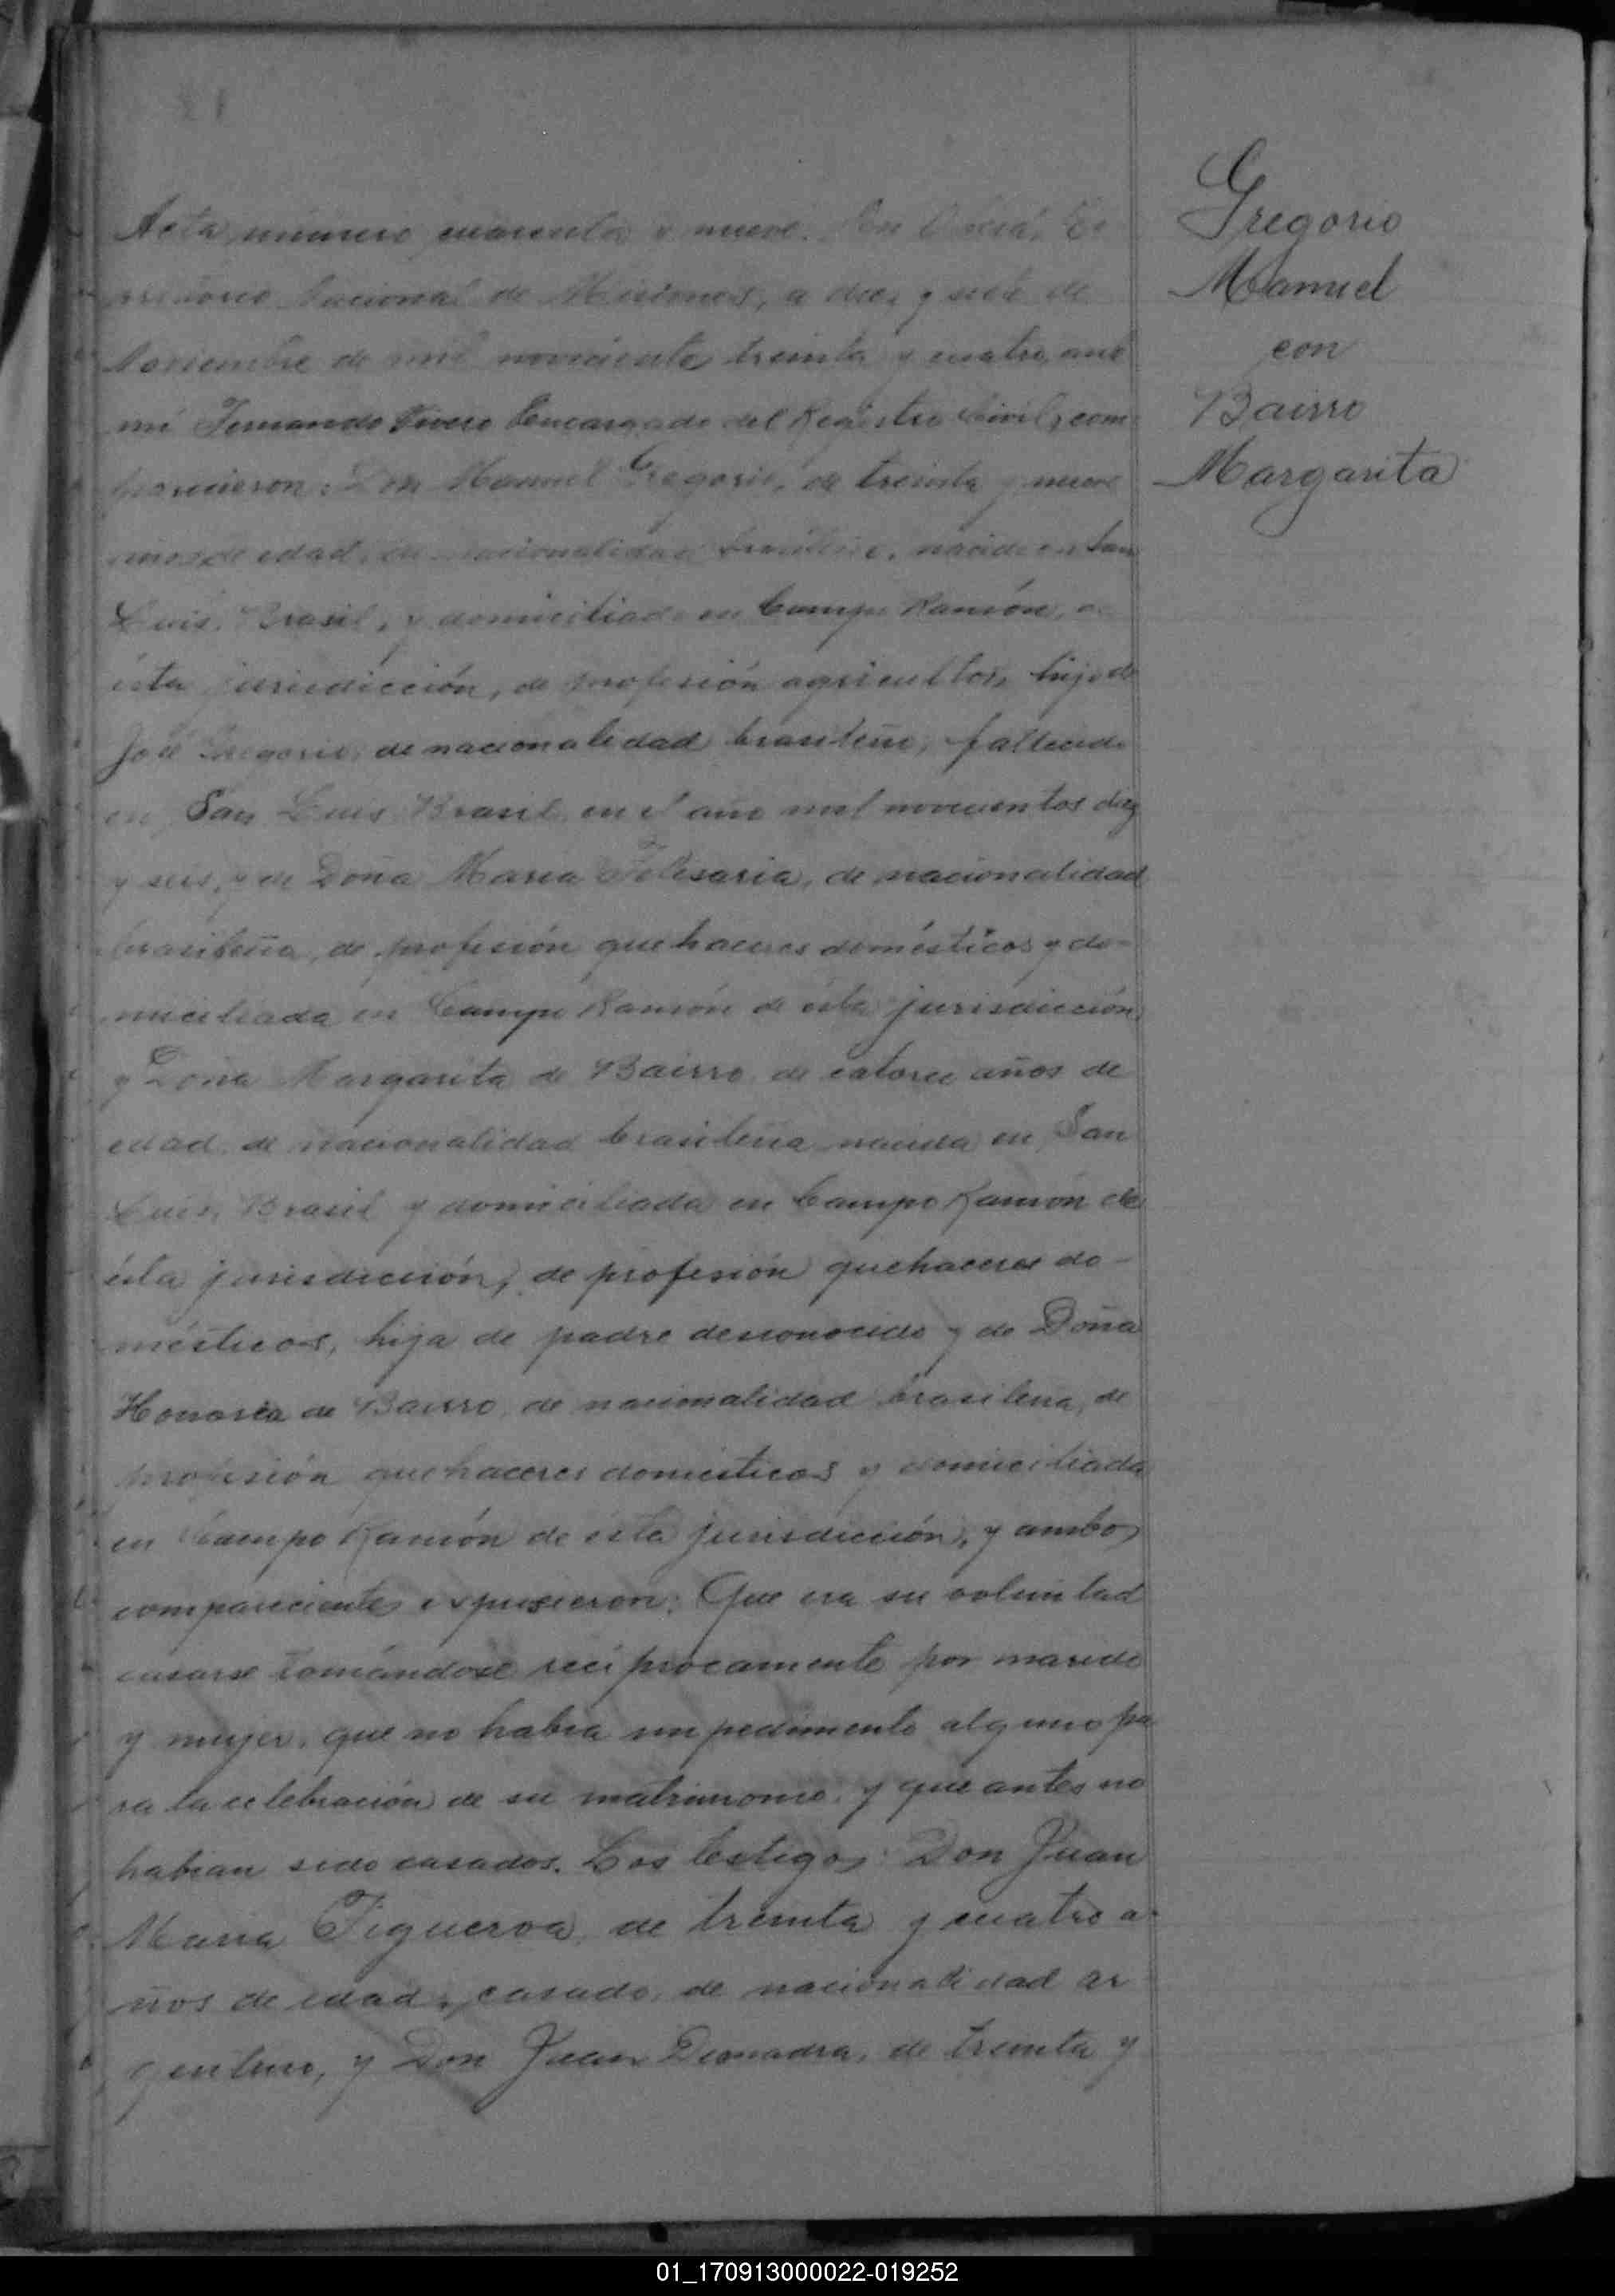 Acta número cuarenta y nueve. En Oberá, Te
rritorio Nacional de Misiones, a diez y siete de
Noviembre de mil novecientos treinta y cuatro, ante
mí Fernando Encargado del Registro Civil, com
parecieron: Don Manuel Gregorio, de treinta y nueve
años de edad, de nacionalidad brasileña, nacido en San
Luis, Brasil, y domiciliado en Campo Ramón, de
ésta jurisdicción, de profesión agricultor, hijo de
José Gregorio, de nacionalidad brasileño, fallecido
en San Luis Brasil en el año mil novecientos diez
y seis, y de Doña Maria, de nacionalidad
brasileña, de profesión quehaceres domésticos y do-
miciliada en Campo Ramón de ésta jurisdicción,
y Doña Margarita de Bairro, de catorce años de
edad, de nacionalidad brasileña nacida en San
Luis, Brasil y domiciliada en Campo Ramón de
ésta jurisdicción, de profesión quehaceres do-
mésticos, hija de padre desconocido y de Doña
Honoria de Bairro, de nacionalidad brasileña, de
profesión quehaceres domésticos y domiciliada
en Campo Ramón de ésta jurisdicción, y ambos
comparecientes expusieron: Que era su voluntad
casarse tomándose recíprocamente por marido
y mujer, que no habia impedimento alguno pa
ra la celebración de su matrimonio, y que antes no
habian sido casados. Los testigos Don Juan
Maria Figueroa, de treinta y cuatro a-
ños de edad, casado, de nacionalidad ar
gentino, y Don Juan, de treinta y
Gregorio
Manuel
con
Bairro
Margarita
01_170913000022-019252